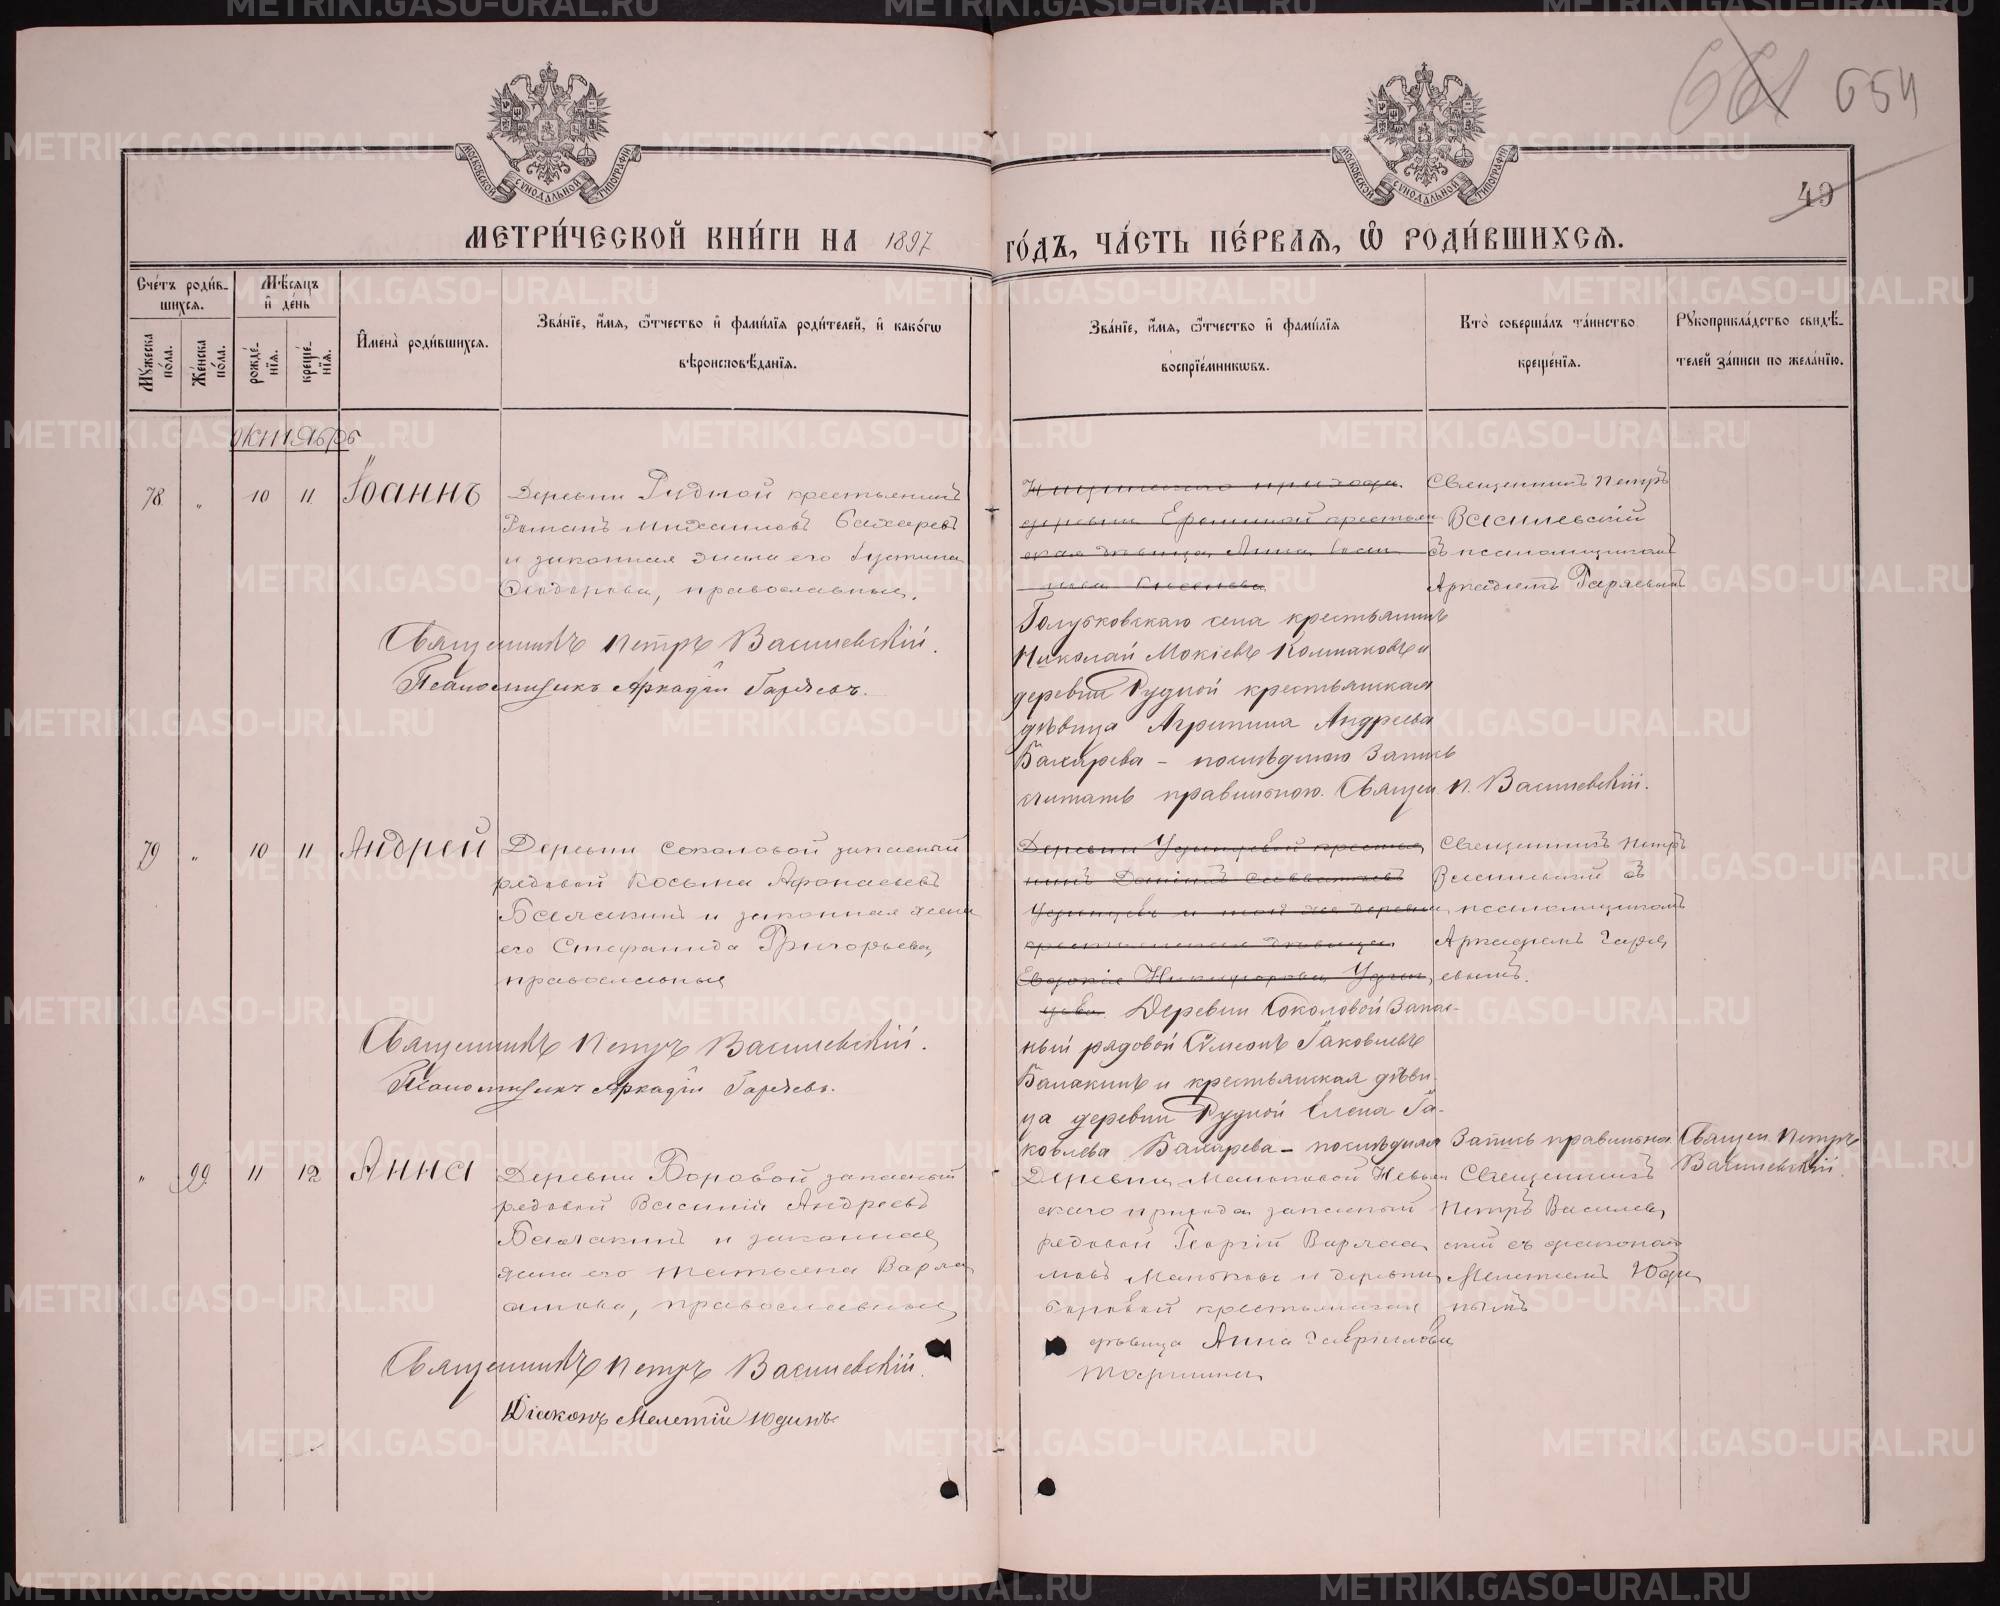 661 654
49
МОСКОВСКОЙ СѴНОДАЛЬНОЙ ТИПОГРАФІИ
МОСКОВСКОЙ СѴНОДАЛЬНОЙ ТИПОГРАФІИ
МЕТРИ́ЧЕСКОЙ КНИ́ГИ НА 1897 ГО́ДЪ, ЧА́СТЬ ПЕ́РВАЯ, Ѡ РОДИ́ВШИХСЯ.
Сче́тъ роди́в-
шихся.
Мꙋ́жеска по́ла.
Же́нска по́ла.
Мѣ́сяцъ
и де́нь
рожде́-
нїя.
креще́-
нїя.
Имена̀ роди́вшихся.
Зва́нїе, и́мя, ѻ́тчество и фами́лїя роди́телей, и како́гѡ
вѣроисповѣ́данїя.
Зва́нїе, и́мя, ѻ́тчество и фами́лїя
воспрїе́мникѡвъ.
Кто̀ соверша́лъ та́инство
креще́нїя.
Рꙋкоприкла́дство свидѣ́-
телей за́писи по жела́нїю.
октябрь
78 " 10 11 Іоаннъ
Деревни Рудной крестьянинъ
Романъ Михаиловъ Бахаревъ
и законная жена его Іустина
Ѳеодорова, православные.
Священникъ Петръ Василевскій.
Псаломщикъ Аркадій Гаряевъ.
прихода
деревни Ереминой крестьян
ская дѣвица Анна
Голубковскаго села крестьянинъ
Николай Мокіевъ Колмаковъ и
деревни Рудной крестьянская
дѣвица Агрипина Андреева
Бахарева – послѣднюю запись
считать правильною. Священ. П. Василевскій.
Священникъ Петръ
Василевскій
съ псаломщикомъ
Аркадіемъ Гаряевымъ
79 " 10 11 Андрей
Деревни Соколовой запасный
рядовой Косьма Афонасьевъ
Балакинъ и законная жена
его Стефанида Григорьева,
православные
Священникъ Петръ Василевскій.
Псаломщикъ Аркадій Гаряевъ.
Деревни крестья
нинъ Даніилъ Савватіевъ
и той же деревни
крестьянская дѣвица
Евдокія Никифорова
Деревни Соколовой Запас-
ный рядовой Сѵмеонъ Іаковлевъ
Балакинъ и крестьянская дѣви-
ца деревни Рудной Елена Іа-
ковлева Бахарева – послѣдняя Запись правильна. Священ. Петръ
Василевскій.
Священникъ Петръ
Василевскій съ
псаломщикомъ
Аркадіемъ Гаря
евымъ.
" 22 11 12 Анна
Деревни Боровой запасный
рядовой Василій Андреевъ
Балакинъ и законная
жена его Татьяна Варла
амова, православные
Священникъ Петръ Василевскій.
Діаконъ Мелетій Юдинъ
Деревни Маньковой Невьян
скаго прихода запасный
рядовой Георгій Варлаа
мовъ Маньковъ и деревни
Боровой крестьянская
дѣвица Анна Гаврилова
Священникъ
Петръ Василев
скій съ діакономъ
Мелетіемъ Юди
нымъ